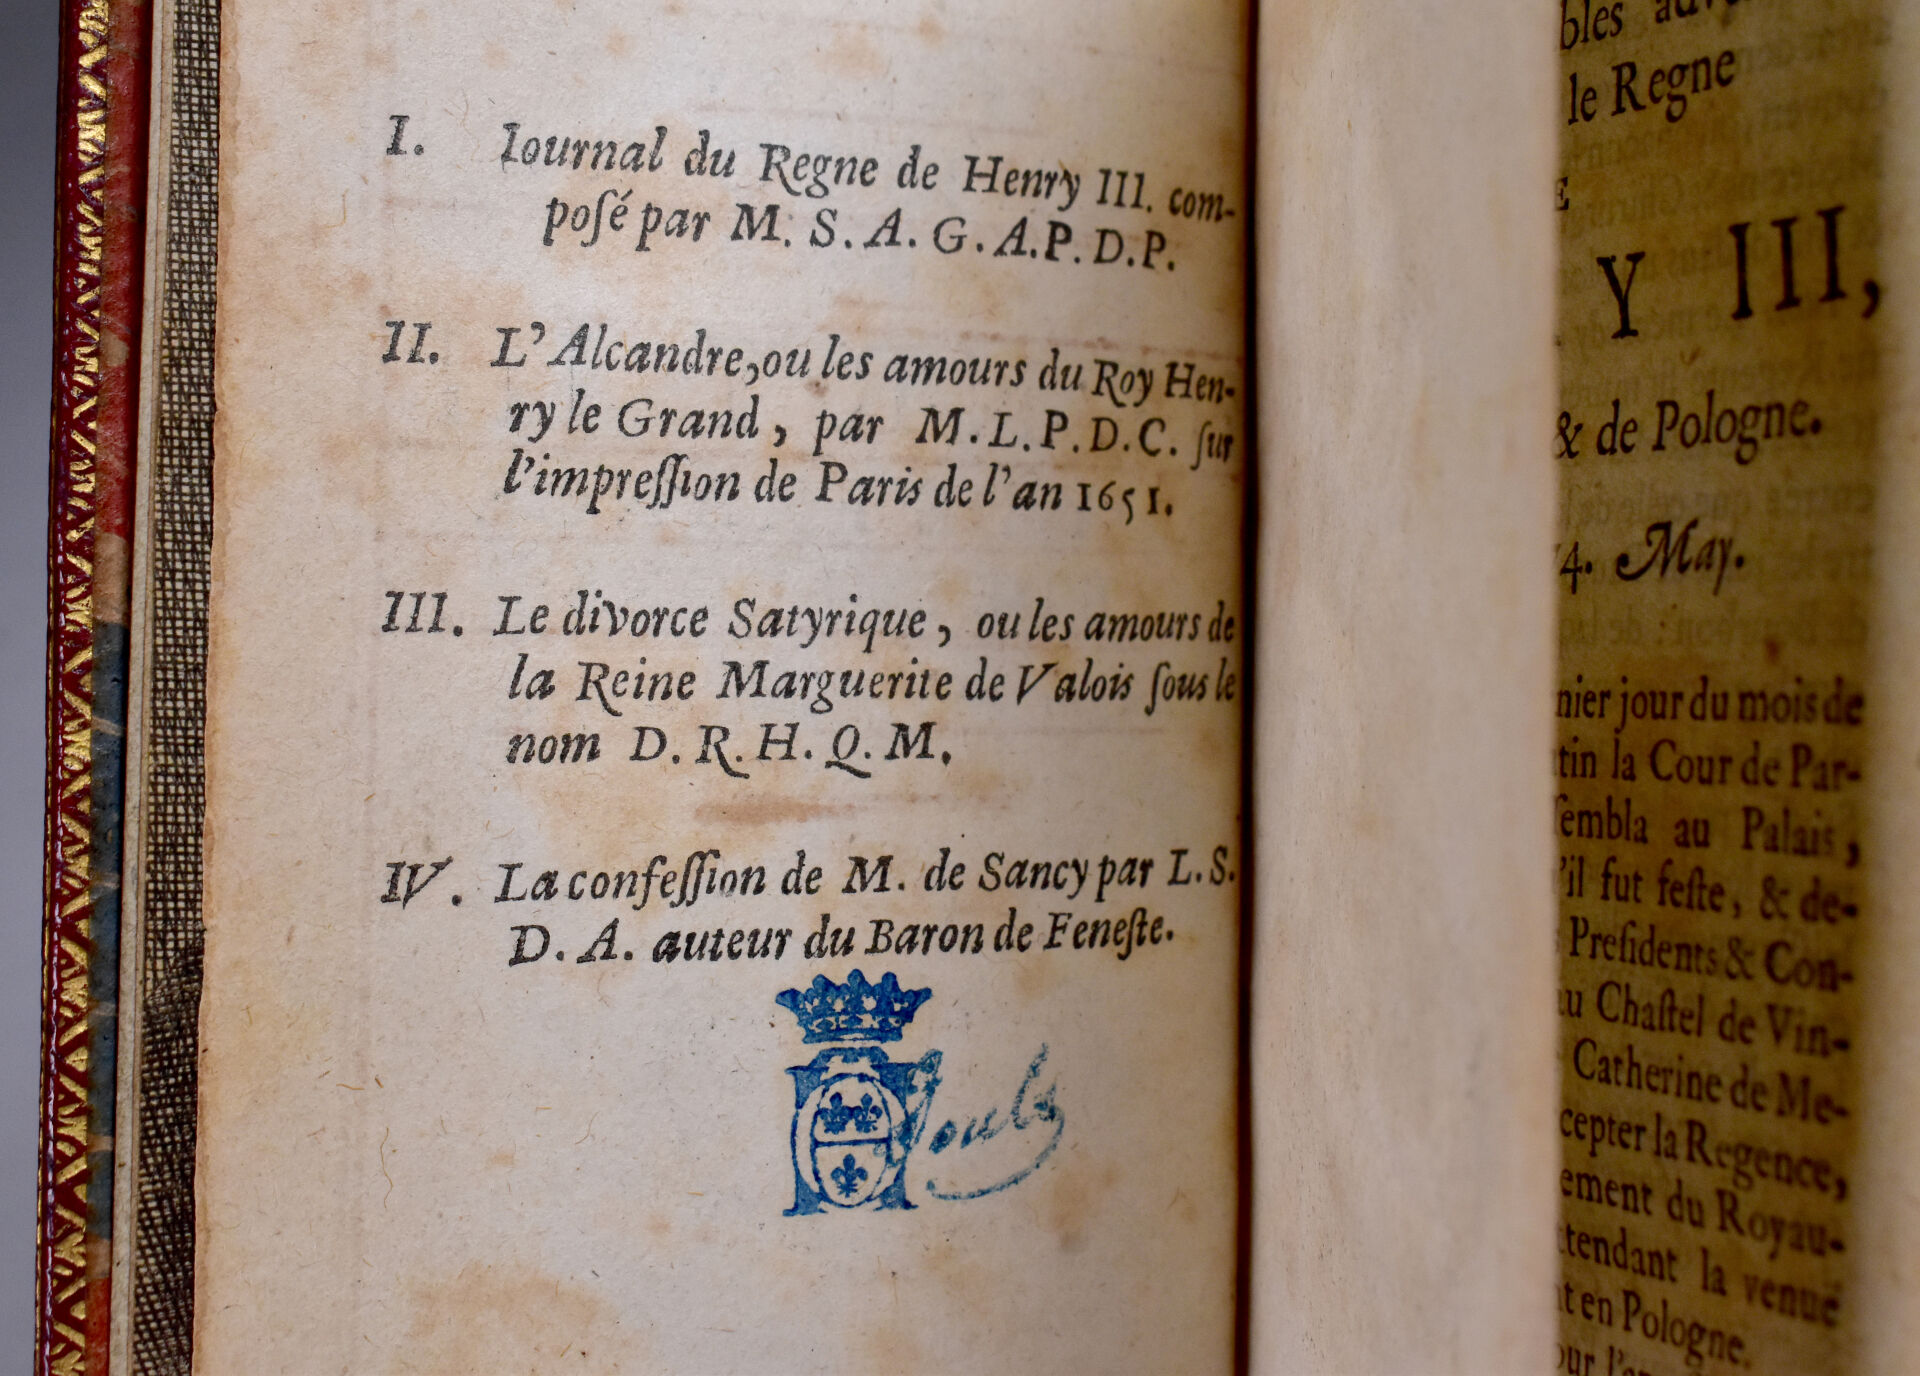 I. Iournal du Regne de Henry III. com-
poſé par M. S. A. G. A. P. D. P.
II. L'Alcandre, ou les amours du Roy Hen-
ry le Grand, par M. L. P. D. C. ſur
l'impreſſion de Paris de l'an 1651.
III. Le divorce Satyrique, ou les amours de
la Reine Marguerite de Valois ſous le
nom D. R. H. Q. M.
IV. La confeſſion de M. de Sancy par L. S.
D. A. auteur du Baron de Feneſte.
le Regne
Y III,
& de Pologne.
4. May.
jour du mois de
la Cour de Par-
au Palais,
il fut feſte, & de-
Preſidents & Con-
Chaſtel de Vin-
Catherine de Me-
la Regence,
du Royau-
la venuë
en Pologne.